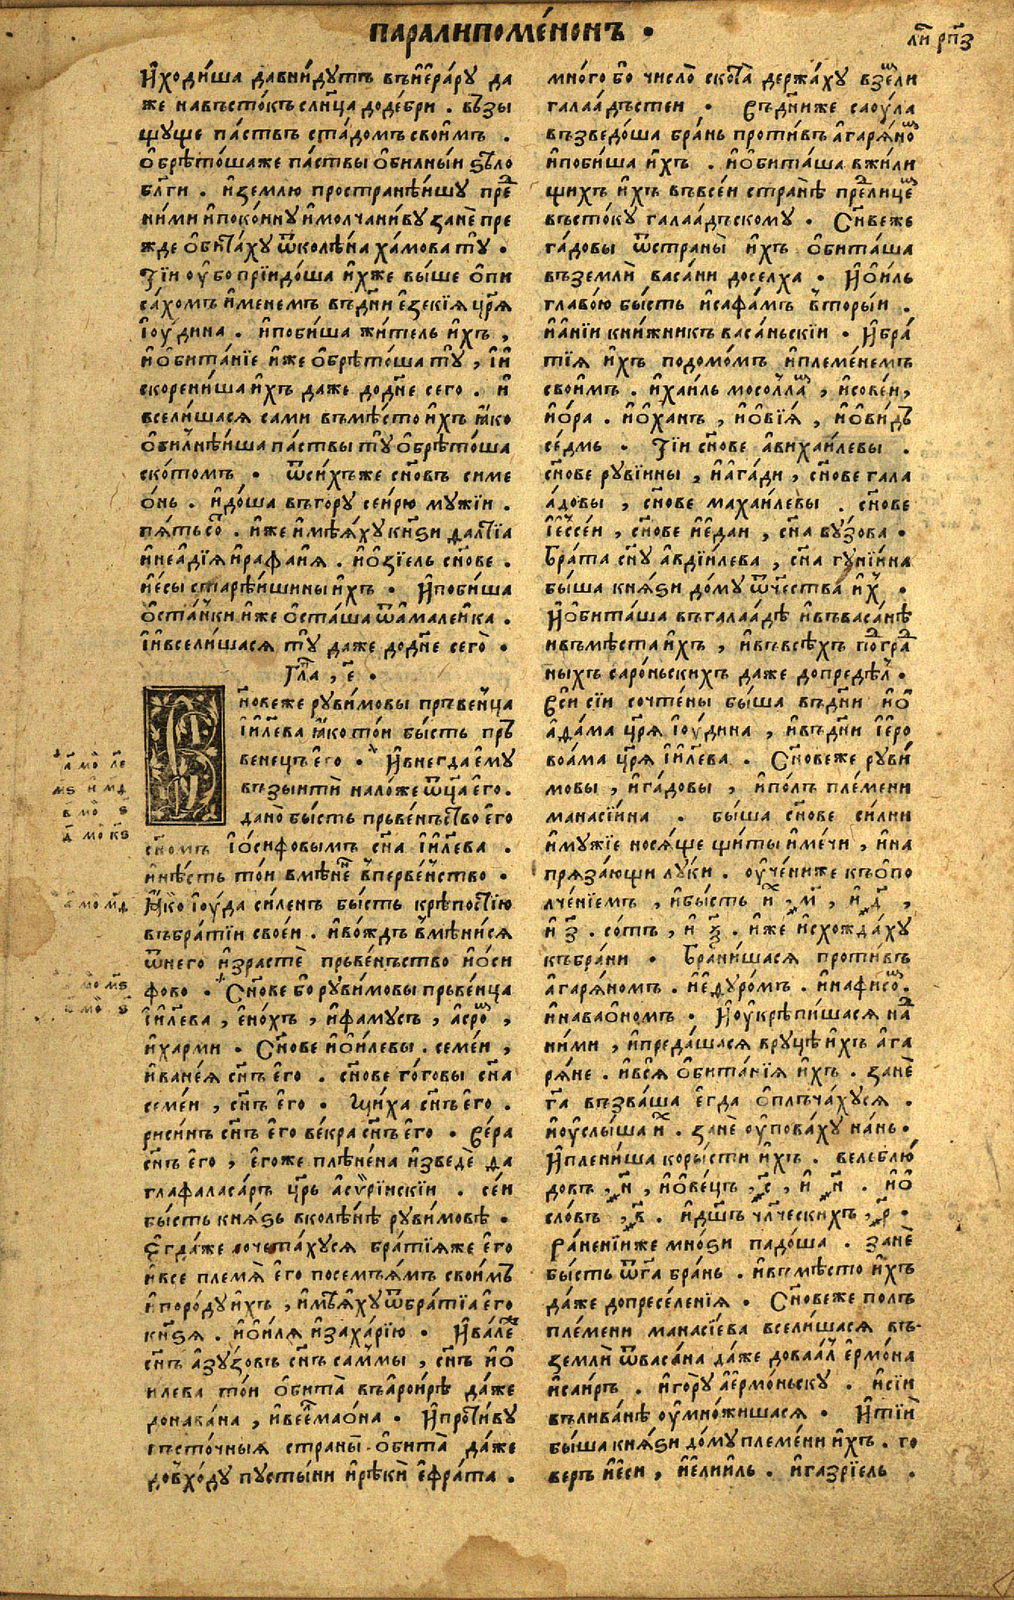 ПАРАЛИПОМЕ́НОНЪ •
ли́ рп҃з
И҆ходи́ша давни́дутъ въи҆е҆ра́ру да
же навъсто́къ сл҃нца додебри . възы
щуще па́ствъ ста́домъ своим̑ъ .
ѻ҆брѣто́шаже па́ствы ѻ҆билны́и ѕѣло
бл҃ги . и҆землю простраднѣ́ишу пре
ни́ми и҆поко́йну и҆молчани́ву занѐ пре
жде ѻ҆бита́ху ѿколѣ́на ха́мова тꙋ̀ .
Ті́и ѹ҆бо прїидо́ша и҆хже вы́ше ѻ҆пи
са́хомъ и҆менемъ въдни̑ е҆зекі́я цр҃я
і҆ѹ́дина . и҆поби́ша жи́тель и҆хъ ,
и҆ѻ҆бита́нїе и҆же ѻ҆брѣто́ша тꙋ̀ , і҆и҆
скорени́ша и҆хъ даже додн҃е сего . и҆
всели́шася сами въмѣ́сто и҆хъ ꙗ҆ко
ѻ҆би́лнѣиша па́ствы тꙋ̀ ѻ҆брѣто́ша
ско́томъ . ѿси́хъже сн҃овъ симе
о́нь . и҆до́ша въго́ру сеи́рю мужїи .
пятьсо́т . и҆же и҆мѣ́яху кн҃ѕи далті́а
и҆неа́дїя и҆рафаи́я . и҆ѻ҆зїель сн҃ове .
и҆е́сы старѣишины и҆хъ . И҆поби́ша
ѻ҆ста́нки и҆же ѻ҆ста́ша ѿамалеи́ка .
і҆и҆всели́шася тꙋ̀ даже додн҃е сего̀ .
Гла̀ , є҃ .
новеже руви́мовы пръве́нца
і҆и҃лева ꙗ҆ко то́и бы́сть пръ
венецъ е҆го . И҆внегда е҆му
възы́ити нало́же ѿц҃а е҆го .
дано̀ бы́сть прьве́ньство е҆го
сн҃омъ і҆ѻ́сифовымъ сн҃а і҆и҃лева .
и҆нѣ́сть то́и вмѣне́н в̾перве́нство .
Ꙗ҆ко і҆ѹ́да си́ленъ бы́сть крѣ́постїю
въбра́тїи свое́и . и҆вождъ в̾мѣ́нися
ѿнего и҆зрастѐ прьве́ньство и҆ѻ́си
фово . Сн҃ове бо руви́мовы прьве́нца
і҆и҃лева , е҆но́хъ , и҆фаму́съ , а҆сро́м ,
и҆харми . Сн҃ове и҆ѻи́левы . семе́и ,
и҆ване́я сн҃ъ е҆го . сн҃ове го́говы сн҃а
семе́и , сн҃ъ е҆го . Щи́ха сн҃ъ е҆го .
риси́нъ сн҃ъ е҆го ве́кра сн҃ъ е҆го . Ве́ра
сн҃ъ е҆го , е҆гоже плѣне́на и҆зведѐ да
глафаласа́ръ цр҃ь а҆сѵрі́искїи . се́и
бы́сть кня́ѕь вколѣ́нѣ руви́мовѣ .
Е҆гда́же почета́хуся бра́тїяже е҆го
и҆все племя̀ е҆го посемъя́мъ свои́мъ
и҆поро́ду и҆хъ , и҆мѣ́яху ѿбра́тїа е҆го
кн҃ѕя . и҆ѻи́ля и҆заха́рїю . И҆вале́к
сн҃ъ а҆зу́зовъ сн҃ъ са́ммы , сн҃ъ и҆ѻ
илева то́и ѻ҆бита̀ въа҆рои́рѣ да́же
донава́на , и҆вее́лмао́на . И҆проти́ву
въсто́чныя страны̀ ѻ҆бита̀ да́же
дов̾хо́ду пусты́ни и҆рѣ́ки е҆фра́та .
мно́го бо число̀ скота̀ держа́ху взе́мли
галаа́дъстеи . Въдн҃иже сао́ула
възведо́ша бра́нь проти́въ а҆гаря́ном
и҆поби́ша и҆хъ . и҆ѻ҆бита́ша вжи́ли
щихъ и҆хъ въвсе́и странѣ̀ пре́лицем
въсто́ку галаа́дьскому . Сн҃веже
га́довы ѿстраны̀ и҆хъ ѻ҆бита́ша
въземли̑ васа́ни доселха . И҆ѻи́ль
главо́ю бы́сть и҆сафа́мъ в̾торы́и .
и҆а́нїи кни́жникъ васа́ньскїи . И҆бра́
тїя и҆хъ подомо́мъ и҆племе́немъ
свои́мъ . и҆хаи́ль мосо́ллам , и҆сове́и ,
и҆о́ра . и҆ѻ́ханъ , и҆ѻ҆ві́я , и҆ѻ҆ви́дъ
се́дмь . Ті́и сн҃ове а҆вихаи́левы .
сн҃ове руви́нны , и҆а҆га́ди , сн҃ове гала
а́довы , сн҃ове махаи́левы . сн҃ове
і҆ессе́и , сн҃ове и҆едаи , сн҃а вузова .
Бра́та сн҃у а҆вдїи́лева , сн҃а гуні́ина
бы́ша кня́ѕи до́му ѿч҃ества и҆х .
И҆ѻ҆бита́ша въгалаа́дѣ и҆въваса́нѣ
и҆въмѣ́ста и҆хъ , и҆въвсѣ́хъ погра́
ныхъ саро́ньскихъ даже допредѣ́л .
Вси сїи сочте́ны бы́ша въдн҃и и҆ѻ
а҆да́ма цр҃я і҆ѹ́дина , и҆въдн҃и і҆еро
воа́ма цр҃я і҆и҃лева . Сн҃овеже руви́
мовы , и҆га́довы , и҆по́лъ пле́мени
манасі́ина . бы́ша сн҃ове си́лни
и҆му́жїе нося́ще щи́ты и҆ме́чи , и҆на
пряза́ющи лу́ки . ѹ҆че́ниже къѻпо
лче́нїемъ , и҆бы́сть и҆х , м҃ , и҆ , д҃ ,
и҆ з҃ . со́тъ , и҆ ѯ҃ . и҆же и҆схожда́ху
къбра́ни . Брани́шася проти́въ
а҆гаря́номъ . и҆е҆дуро́мъ . и҆нафисо́м .
и҆навао́номъ . И҆ѹкрѣпи́шася на
ни́ми , и҆преда́шася вру́цѣ и҆хъ а҆га
ря́не . и҆вся̀ ѻ҆бита́нїя и҆хъ . занѐ
г҃а възва́ша е҆гда ѻ҆плъча́хуся .
и҆ѹслы́ша и҆х . занѐ ѹ҆пова́ху на́нь .
И҆плени́ша коры́сти и҆хъ . велеблю́
довъ , н҃ , и҆ѻ҆ве́цъ , с҃ , и҆ н҃ . и҆ѻ
сло́въ , в҃ . и҆дш҃ъ чл҃ческихъ , р҃ .
Ра́ненїиже мно́ѕи падо́ша . занѐ
бы́сть ѿг҃а бра́нь . и҆въмѣ́сто и҆хъ
да́же допресе́ленїя . Сн҃овеже полъ
пле́мени манасі́ева всели́шася въ
земли̑ ѿваса́на да́же доваа́л е҆рмо́на
и҆саи́ръ . и҆го́ру а҆ермо́ньску . и҆сїи
въли́ванѣ ѹ҆мно́жишася . И҆ті́и
бы́ша кня́ѕи до́му племе́ни и҆хъ . го
веръ и҆е́си , и҆е҆лии́ль . и҆газрі́ель .